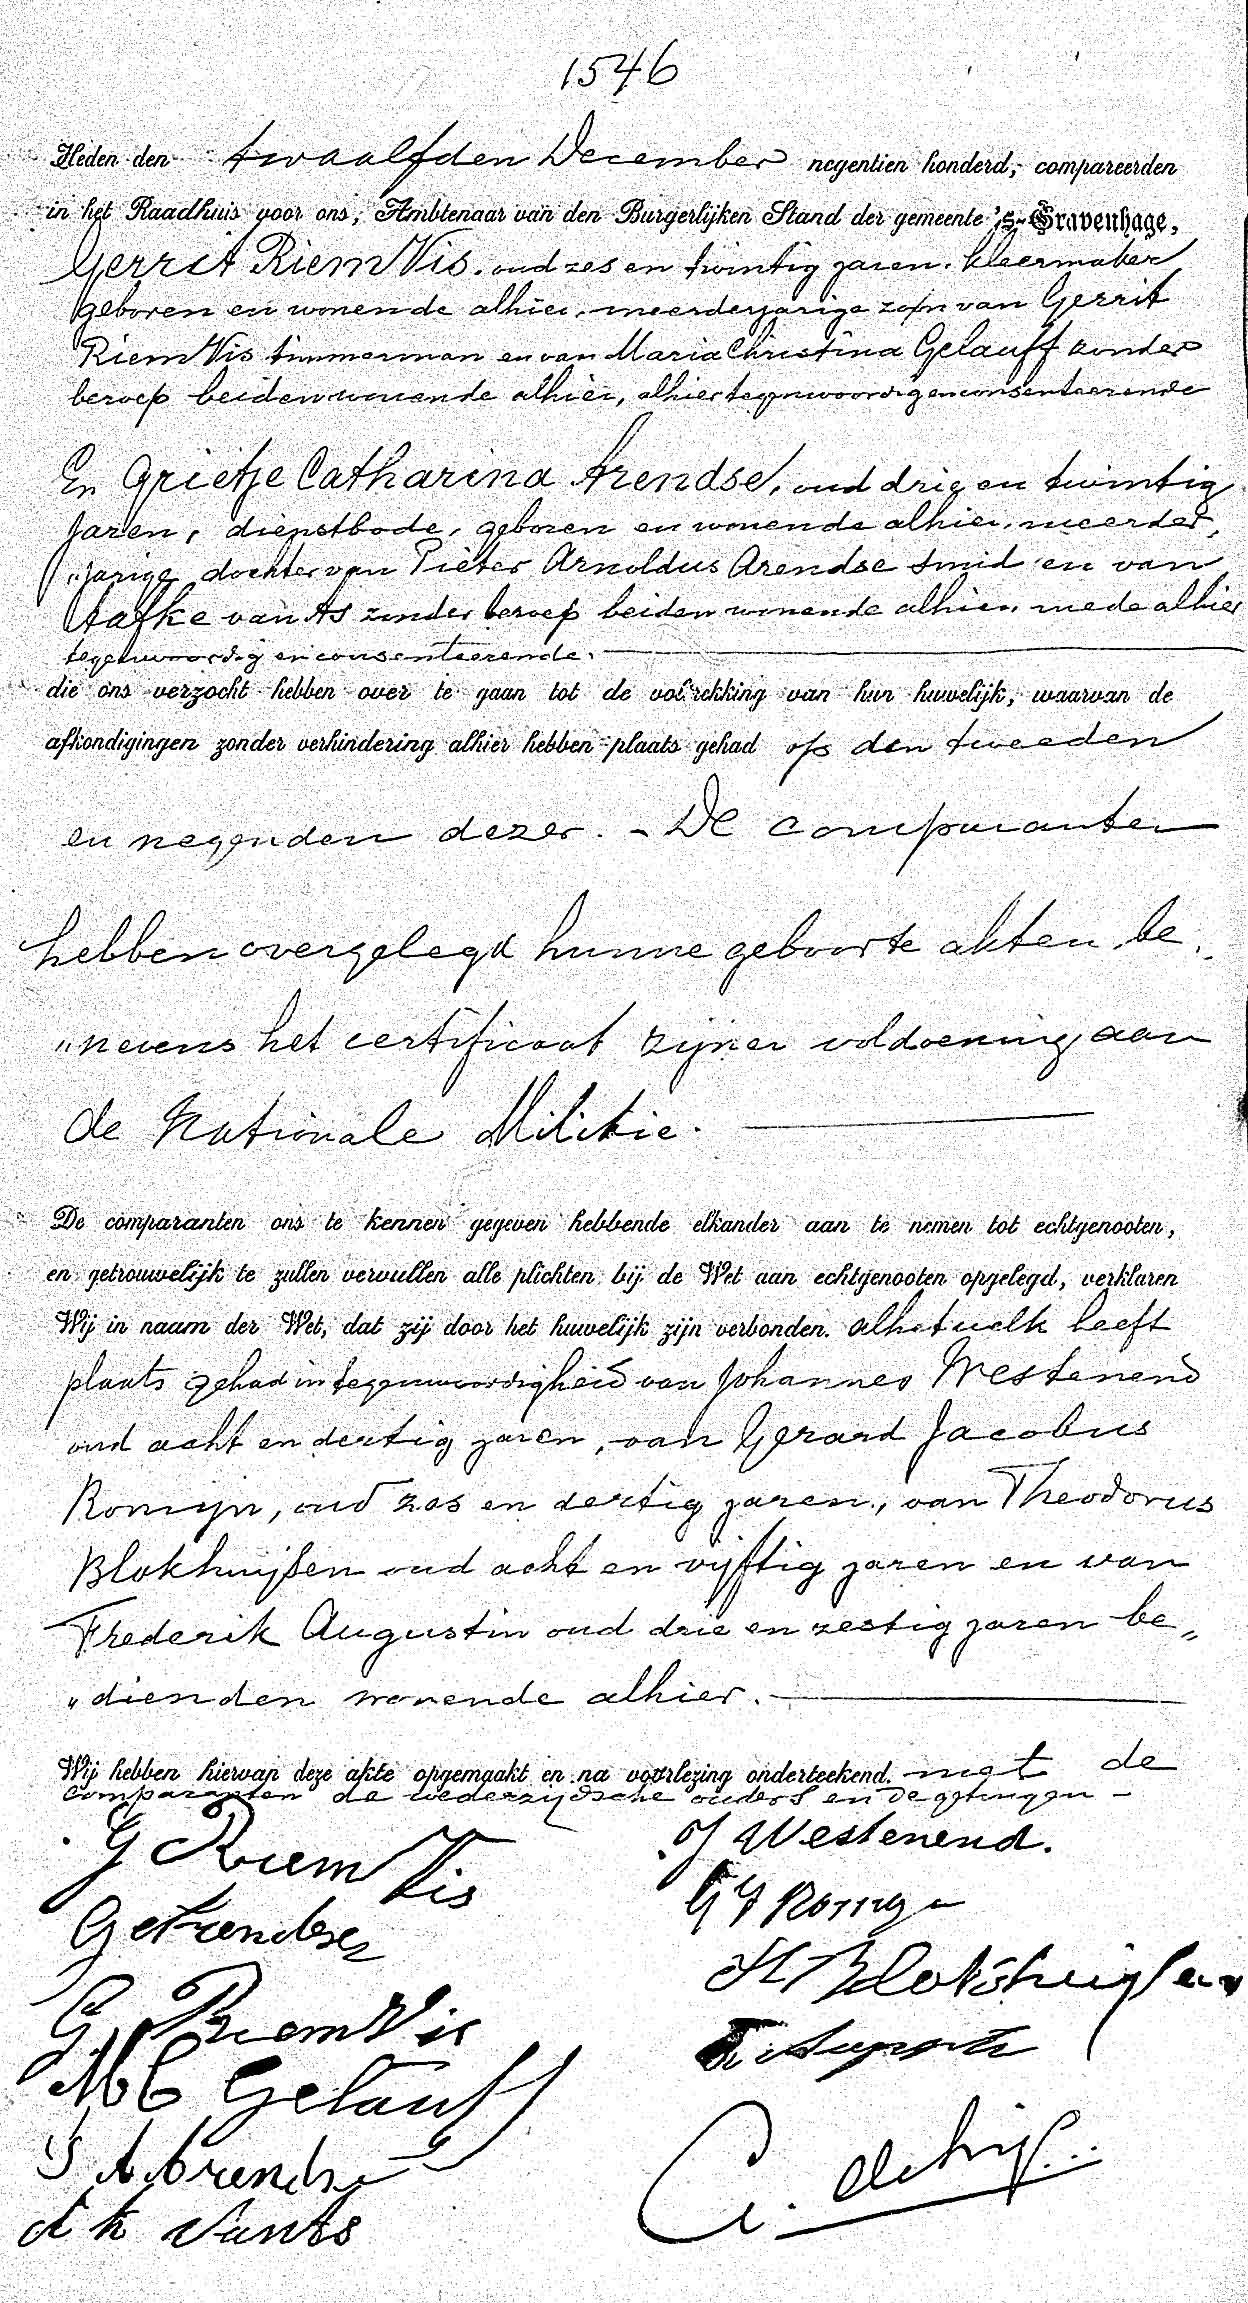 1546
Heden den twaalfden December negentien honderd, compareerden
in het Raadhuis voor ons, Ambtenaar van den Burgerlijken Stand der gemeente 's-Gravenhage,
Gerrit Riem Vis, oud zes en twintig jaren, kleermaker
geboren en wonende alhier, meerderjarige zoon van Gerrit
Riem Vis timmerman en van Maria Christina Gelauff zonder
beroep beiden wonende alhier, alhier tegenwoordig en consenteerende
En Grietje Catharina Arendse, oud drie en twintig
jaren, dienstbode, geboren en wonende alhier, meerder„
„jarige dochter van Pieter Arnoldus Arendse smid en van
Aafke van As zonder beroep beiden wonende alhier, mede alhier
tegenwoordig en consenteerende.
die ons verzocht hebben over te gaan tot de voltrekking van hun huwelijk, waarvan de
afkondigingen zonder verhindering alhier hebben plaats gehad op den tweeden
en negenden dezer. - De comparanten
hebben overgelegd hunne geboorte akten be„
„nevens het certificaat zijner voldoening aan
de Nationale Militie.
De comparanten ons te kennen gegeven hebbende elkander aan te nemen tot echtgenooten,
en getrouwelijk te zullen vervullen alle plichten bij de Wet aan echtgenooten opgelegd, verklaren
Wij in naam der Wet, dat zij door het huwelijk zijn verbonden. alhetwelk heeft
plaats gehad in tegenwoordigheid van Johannes Westenend
oud acht en dertig jaren, van Gerard Jacobus
Romijn, oud zes en dertig jaren, van Theodorus
Blokhuijsen oud acht en vijftig jaren en van
Frederik Augustin oud drie en zestig jaren be„
„dienden wonende alhier.
Wij hebben hiervan deze akte opgemaakt en na voorlezing onderteekend. met de
comparanten de wederzijdsche ouders en de getuigen -
G Riem Vis
J Westenend.
GC Arendse
G J Romijn
G Riem Vis
Th Blokhuijsen
M C Gelauff
F. Augustin
P A Arendse
A k van As